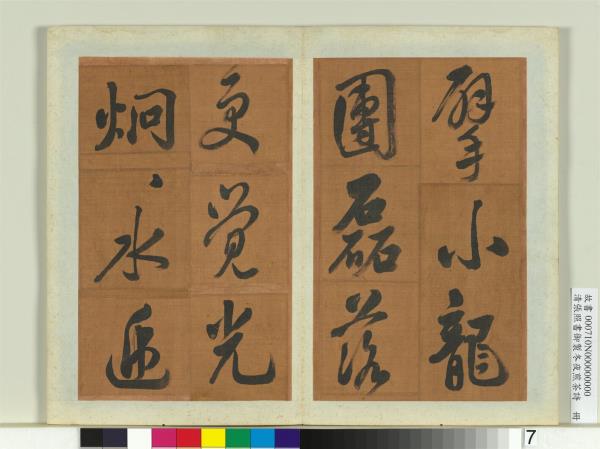 擘小龍
團磊落
更覺光
炯〻水遞
故書000710N000000000
清張照書御製冬夜煎茶詩 冊
7